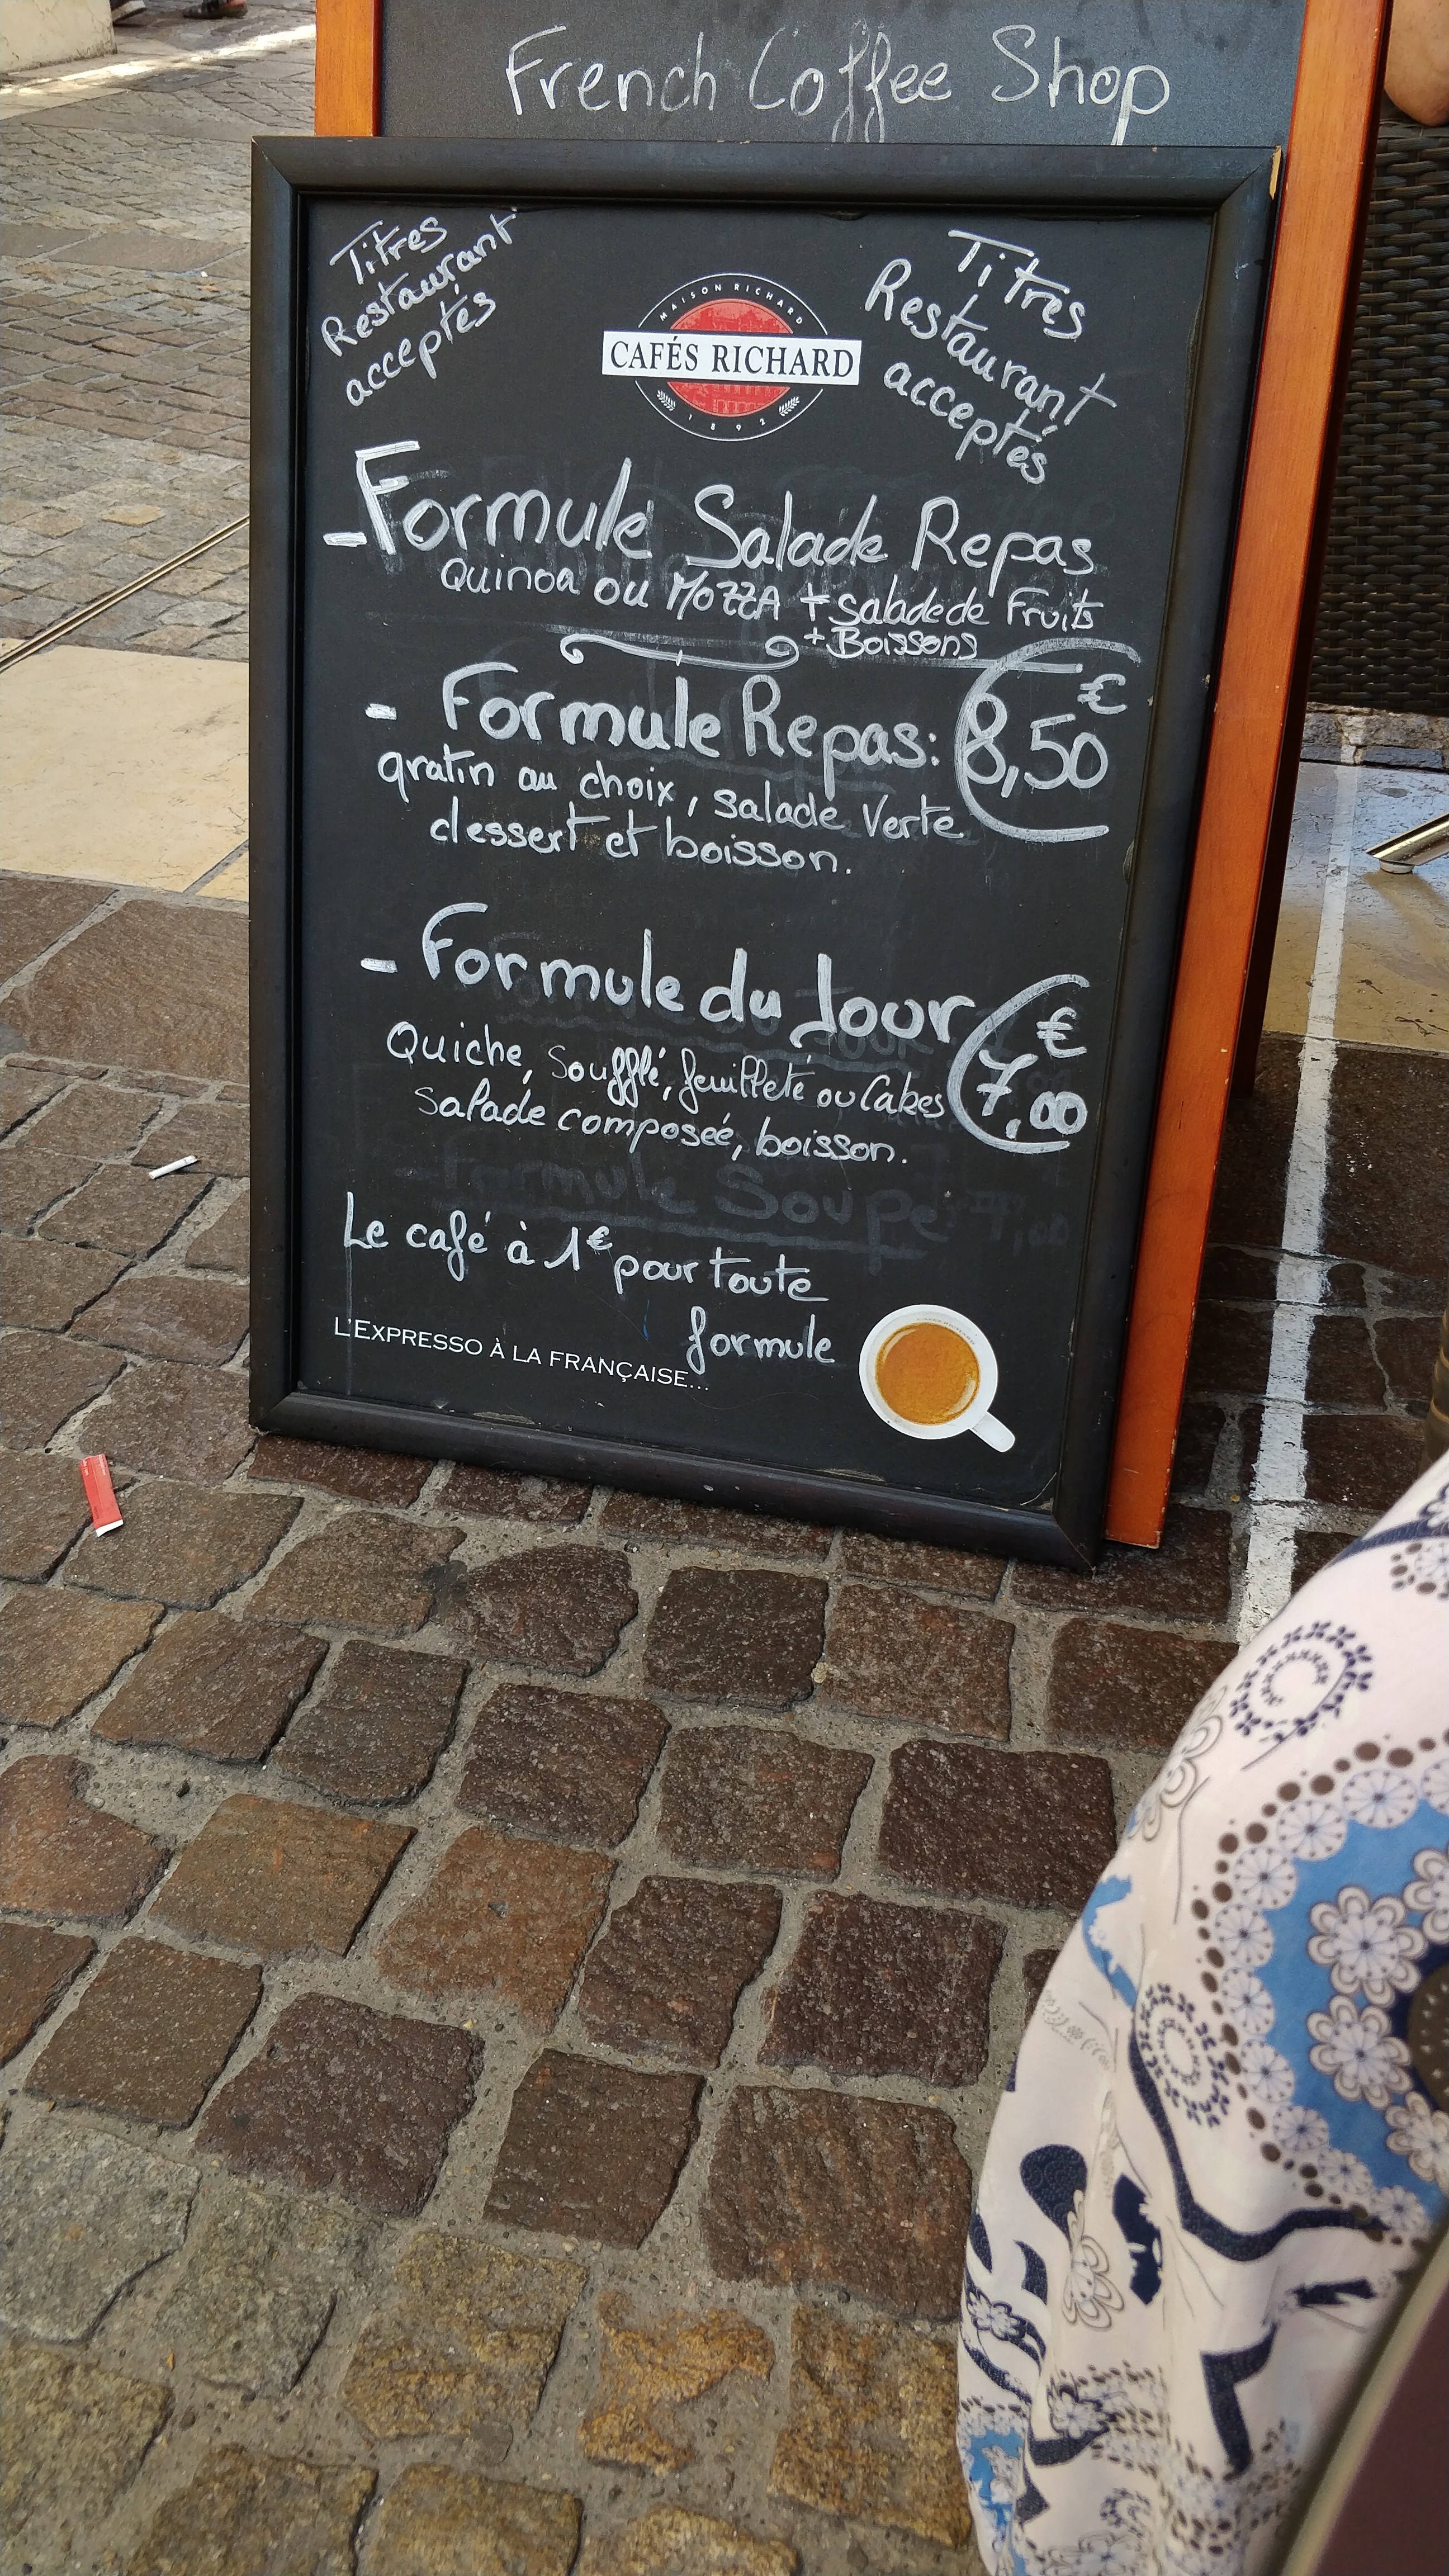 French Coffee Shop
Titres
Restaurant
acceptés
Titres
Restaurant
acceptés
MAISON RICHARD
CAFÉS RICHARD
1892
- Formule Salade Repas
Quinoa ou MOZZA + Salade de Fruits
+ Boissons
- Formule Repas: 8,50 €
gratin au choix, salade Verte
dessert et boisson.
- Formule du Jour 7,00 €
Quiche, Soufflé, feuilleté ou Cakes
Salade composée, boisson.
Formule Soupe
Le café à 1€ pour toute
formule
L'EXPRESSO À LA FRANÇAISE...